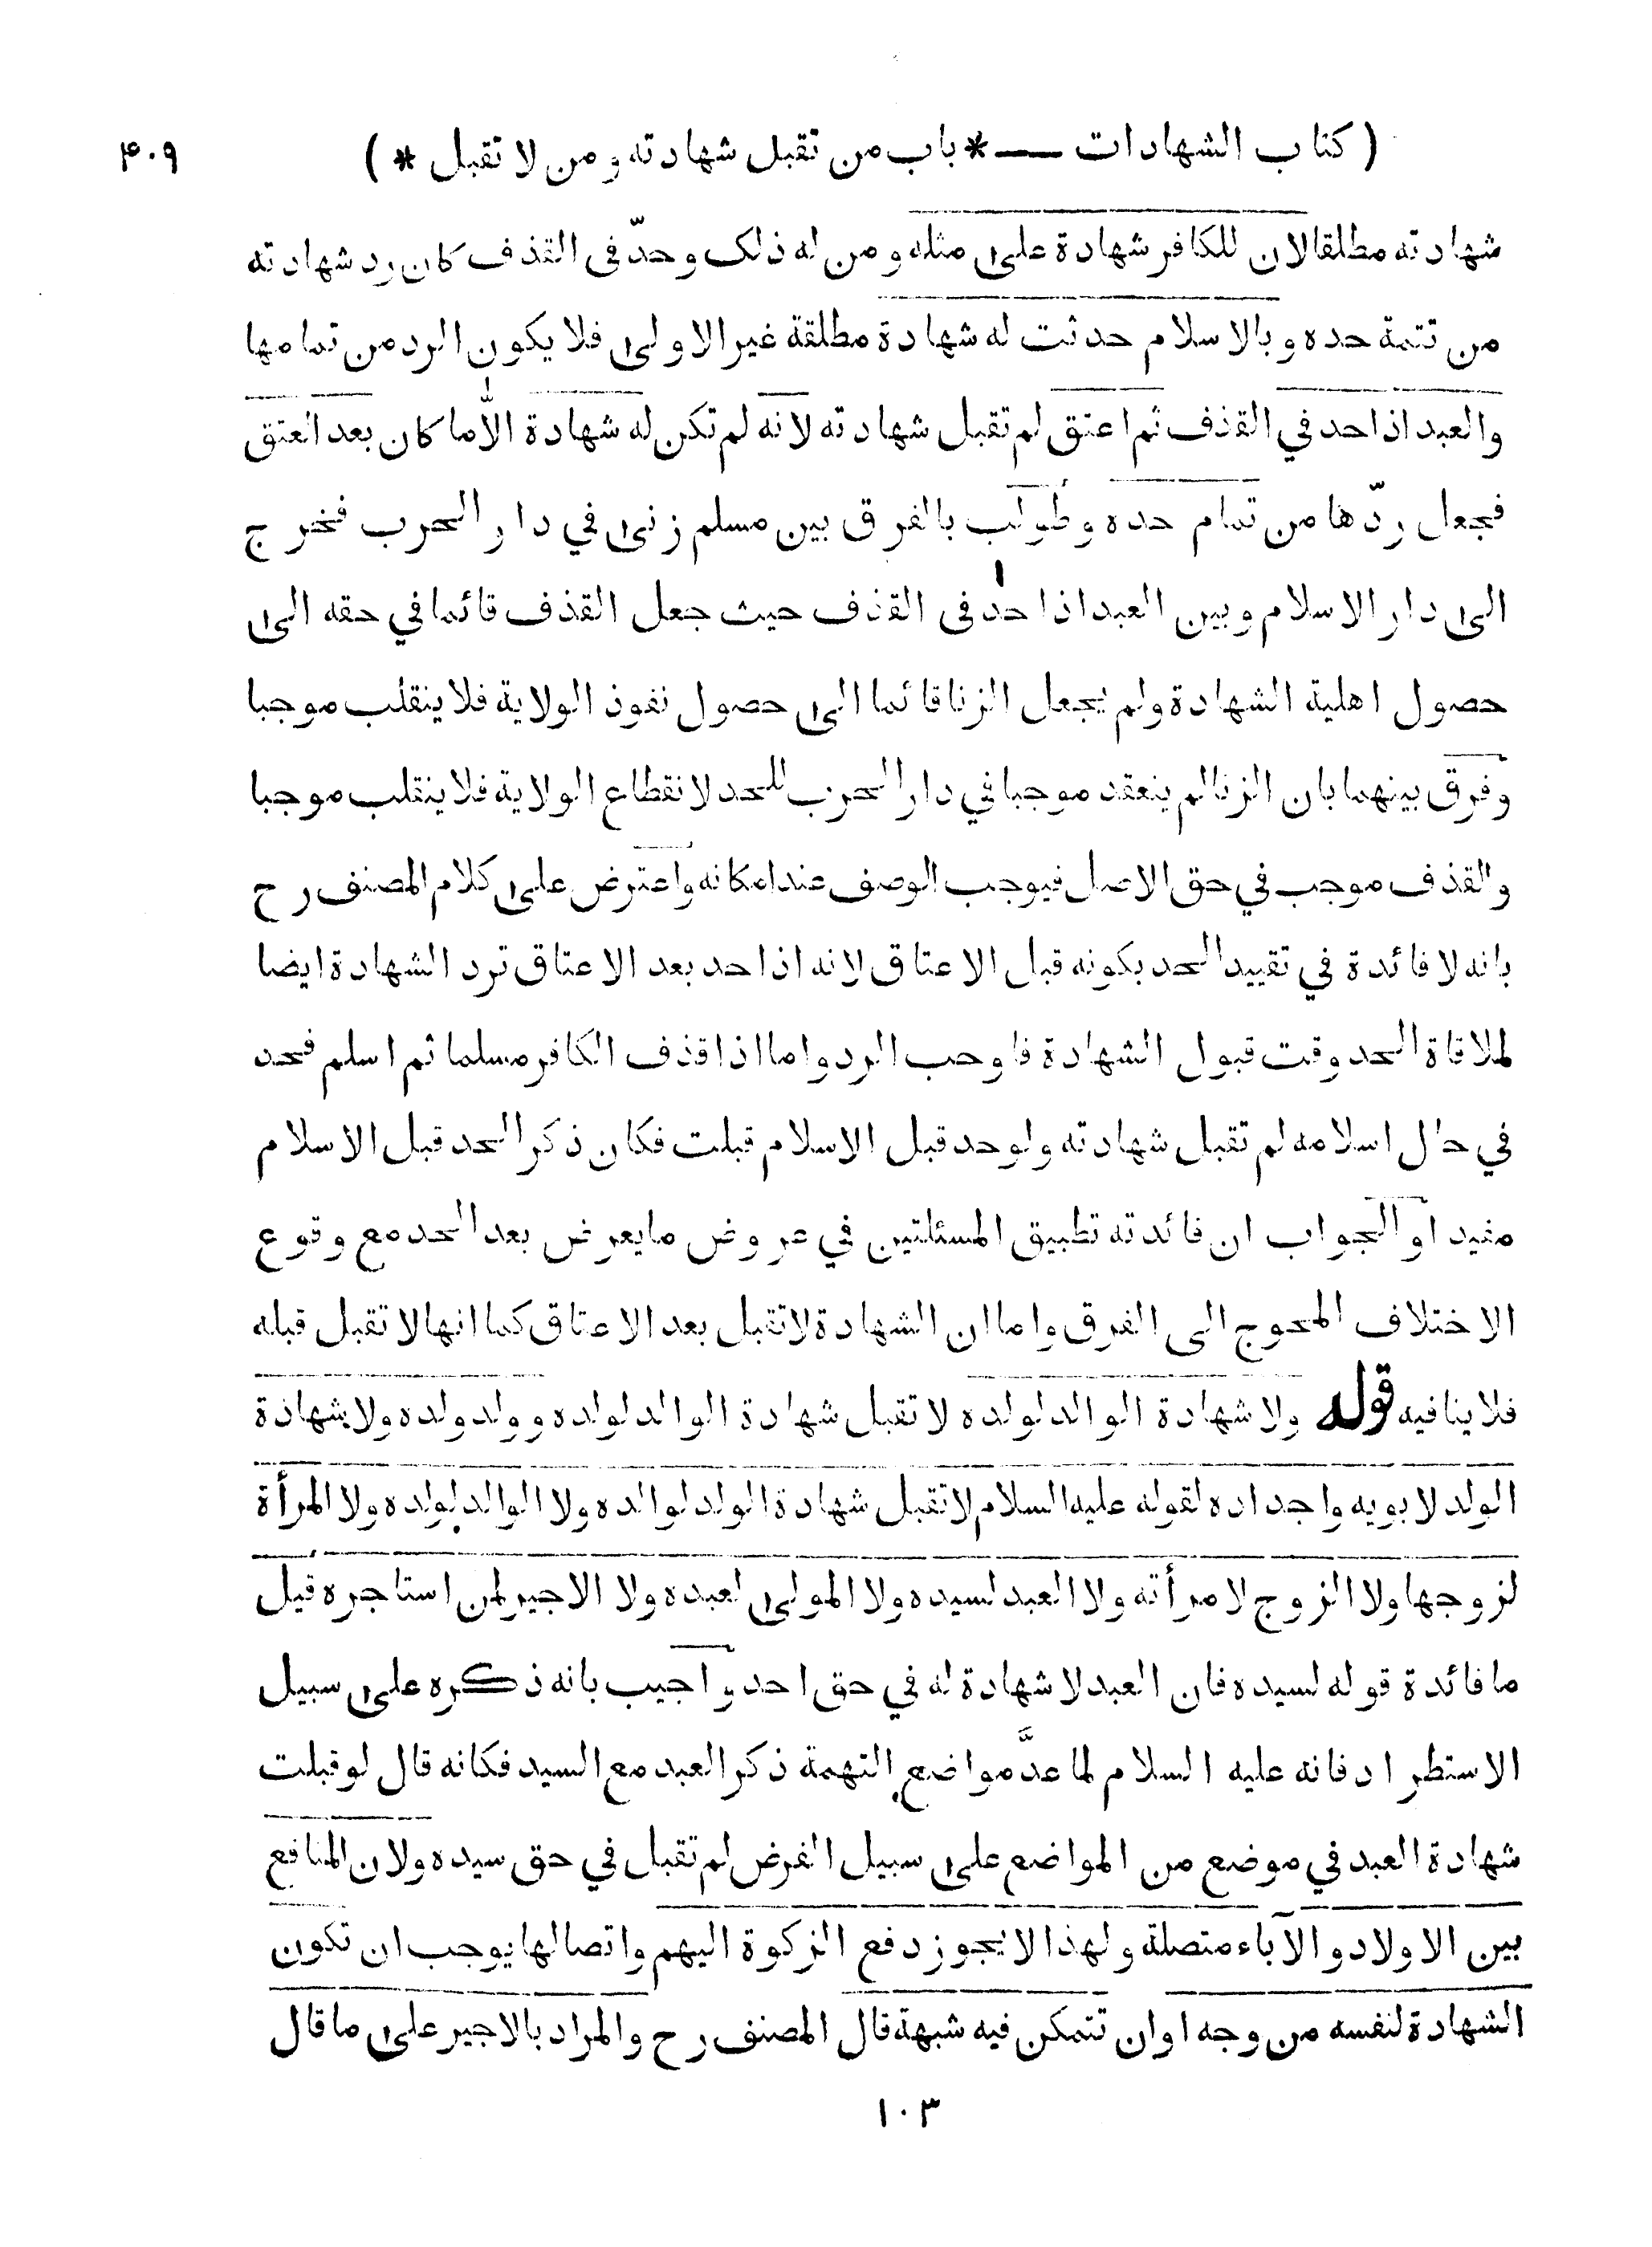 ( كتاب الشهادات ـــ * باب من تقبل شهادته ومن لا تقبل * ) ۴۰۹
شهادته مطلقا لان للكافر شهادة على مثله ومن له ذلك وحدّ فى القذف كان رد شهادته
من تتمة حده وبالاسلام حدثت له شهادة مطلقة غير الاولى فلا يكون الرد من تمامها
والعبد اذا حد في القذف ثم اعتق لم تقبل شهادته لانه لم تكن له شهادة الّا ما كان بعد العتق
فجعل ردّها من تمام حده وطولب بالفرق بين مسلم زنى في دار الحرب فخرج
الى دار الاسلام وبين العبد اذا حد فى القذف حيث جعل القذف قائما في حقه الى
حصول اهلية الشهادة ولم يجعل الزنا قائما الى حصول نفوذ الولاية فلا ينقلب موجبا
وفرق بينهما بان الزنا لم ينعقد موجبا في دار الحرب للحد لانقطاع الولاية فلا ينقلب موجبا
والقذف موجب في حق الاصل فيوجب الوصف عند امكانه واعترض على كلام المصنف رح
بانه لا فائدة في تقييد الحد بكونه قبل الاعتاق لانه اذا حد بعد الاعتاق ترد الشهادة ايضا
لملاقاة الحد وقت قبول الشهادة فاوجب الرد واما اذا قذف الكافر مسلما ثم اسلم فحد
في حال اسلامه لم تقبل شهادته ولو حد قبل الاسلام قبلت فكان ذكر الحد قبل الاسلام
مفيدا والجواب ان فائدته تطبيق المسئلتين في عروض ما يعرض بعد الحد مع وقوع
الاختلاف المحوج الى الفرق واما ان الشهادة لا تقبل بعد الاعتاق كما انها لا تقبل قبله
فلا ينافيه قوله ولا شهادة الوالد لولده لا تقبل شهادة الوالد لولده وولد ولده ولا شهادة
الولد لابويه واجداده لقوله عليه السلام لا تقبل شهادة الولد لوالده ولا الوالد لولده ولا المرأة
لزوجها ولا الزوج لامرأته ولا العبد لسيده ولا المولى لعبده ولا الاجير لمن استاجره قيل
ما فائدة قوله لسيده فان العبد لا شهادة له في حق احد واجيب بانه ذكره على سبيل
الاستطراد فانه عليه السلام لما عدَّ مواضع التهمة ذكر العبد مع السيد فكانه قال لو قبلت
شهادة العبد في موضع من المواضع على سبيل الفرض لم تقبل في حق سيده ولان المنافع
بين الاولاد والآباء متصلة ولهذا لا يجوز دفع الزكوة اليهم واتصالها يوجب ان تكون
الشهادة لنفسه من وجه او ان تتمكن فيه شبهة قال المصنف رح والمراد بالاجير على ما قال
۱۰۳